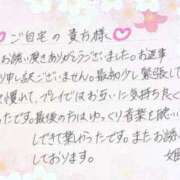 ♡ご自宅の貴方様♡
お誘い頂きありがとうございました。お返事
申し訳ございません。最初少し緊張して
慣れて、プレイではお互いに気持ち良く
ったです。最後の方はゆっくり音楽を聴い
できて楽しかったです。またお誘い
しております。